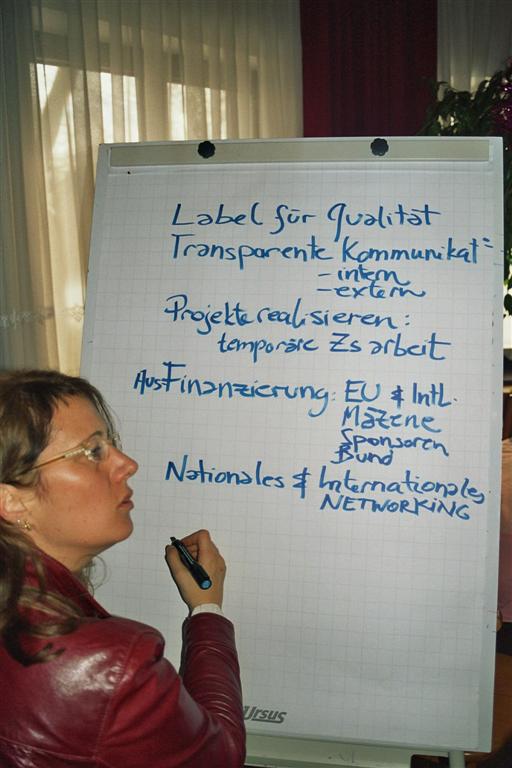 Label für Qualität
Transparente Kommunikat=
- intern
- extern
Projekte realisieren:
temporäre Zs arbeit
AusFinanzierung: EU & Intl.
Mäzene
Sponsoren
Bund
Nationales & Internationales
NETWORKING
Ursus